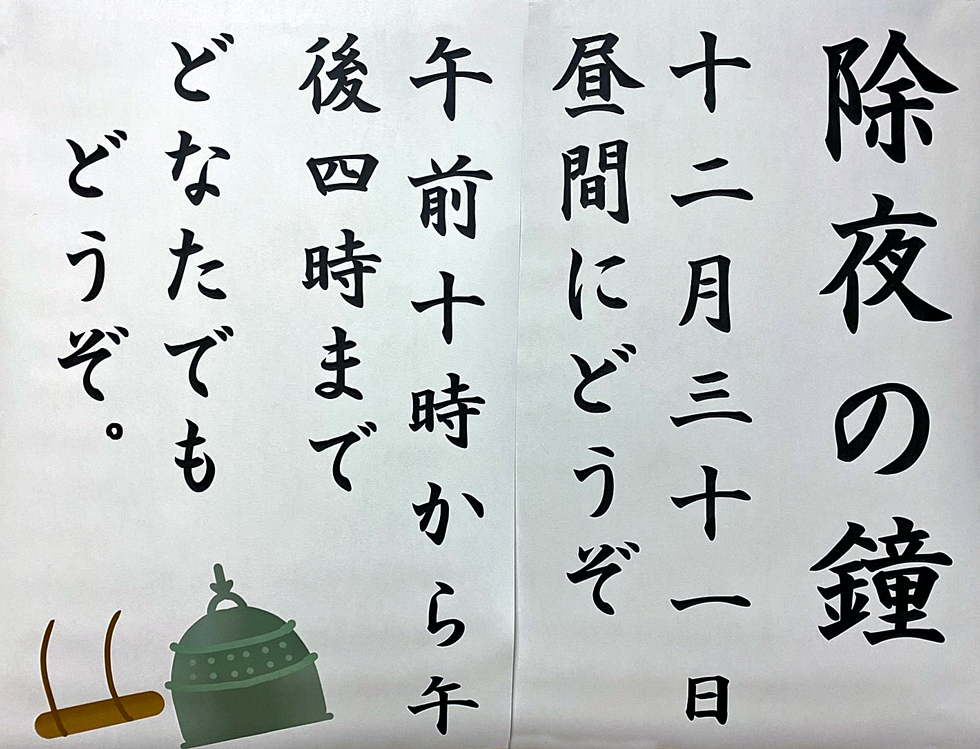 除夜の鐘
十二月三十一日
昼間にどうぞ
午前十時から午
後四時まで
どなたでも
どうぞ。